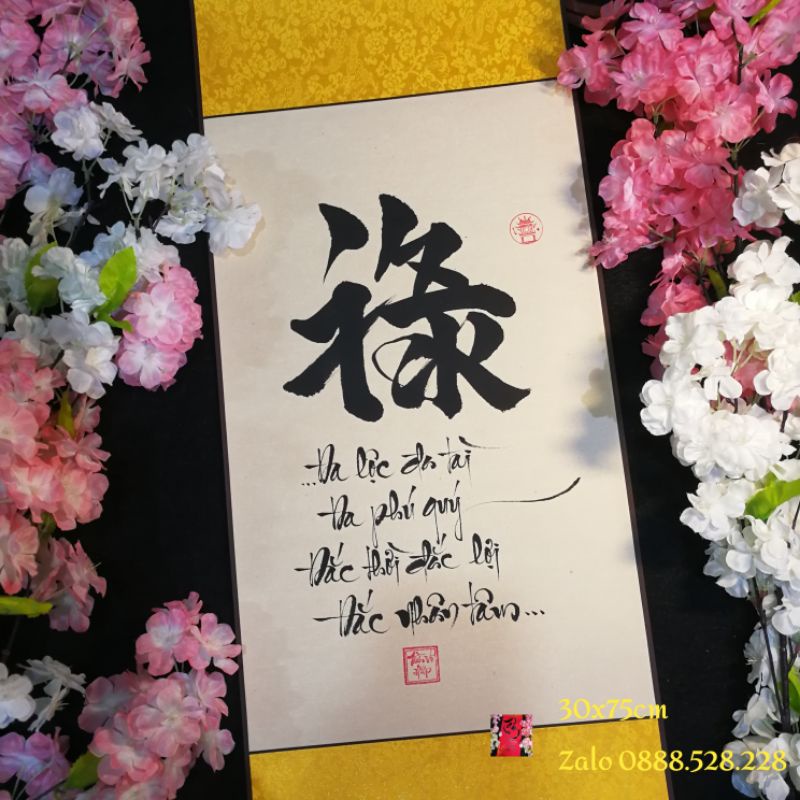 祿
...Đa lộc đa tài
Đa phú quý
Đắc thời đắc lợi
Đắc nhân tâm...
30x75cm
Zalo 0888.528.228